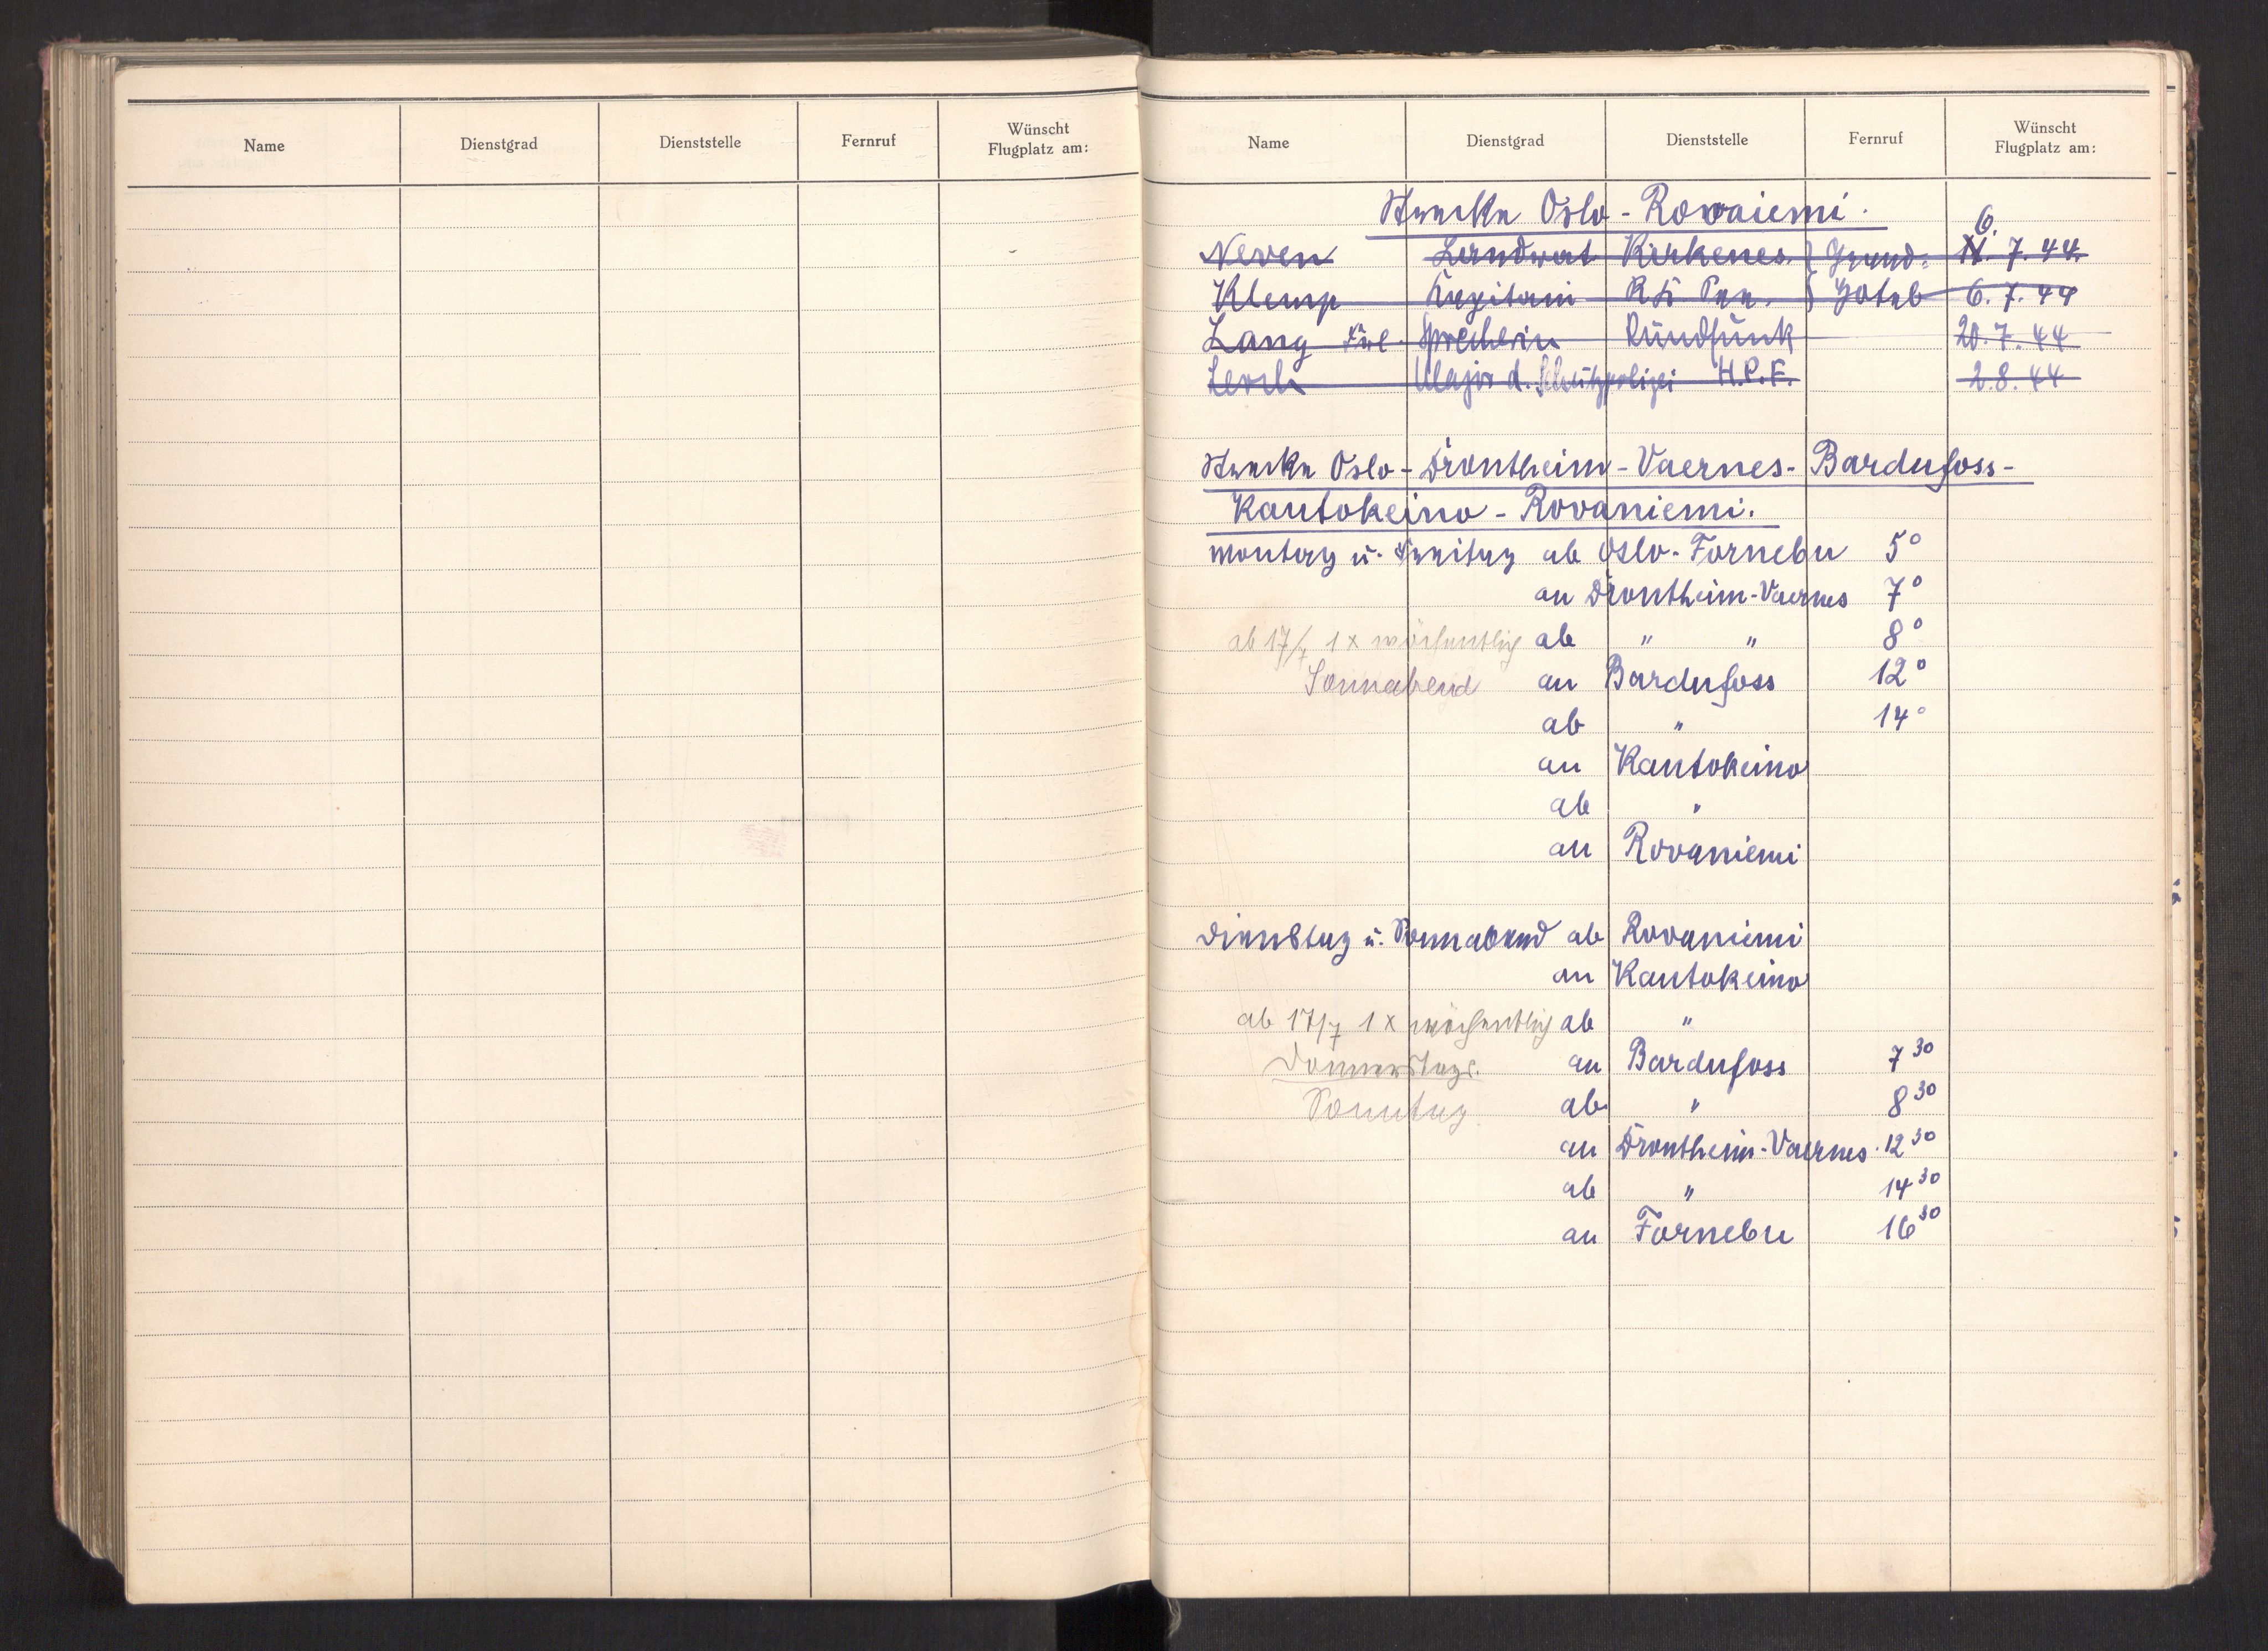 Name Dienstgrad Dienststelle Fernruf Wünscht Flugplatz am:
Name Dienstgrad Dienststelle Fernruf Wünscht Flugplatz am:
Strecke Oslo - Rovaiemi.
Neven Landrat Kirkenes } Grand- 6. 7. 44.
Klemp Kapitän RK } Hotel 6. 7. 44
Lang Frl. Sprecherin Rundfunk 20. 7. 44
Lerch Major d. Schutzpolizei H.P.F. 2. 8. 44
Strecke Oslo - Drontheim - Vaernes - Bardufoss -
Kautokeino - Rovaniemi.
Montag u. Freitag ab Oslo - Fornebu 5⁰
an Drontheim - Vaernes 7⁰
ab 17/7 1 x wöchentlich ab " " 8⁰
Sonnabend an Bardufoss 12⁰
ab " 14⁰
an Kautokeino
ab "
an Rovaniemi
Dienstag u. Sonnabend ab Rovaniemi
an Kautokeino
ab 17/7 1 x wöchentlich ab "
Donnerstags. an Bardufoss 7³⁰
Sonntag ab " 8³⁰
an Drontheim - Vaernes. 12³⁰
ab " 14³⁰
an Fornebu 16³⁰